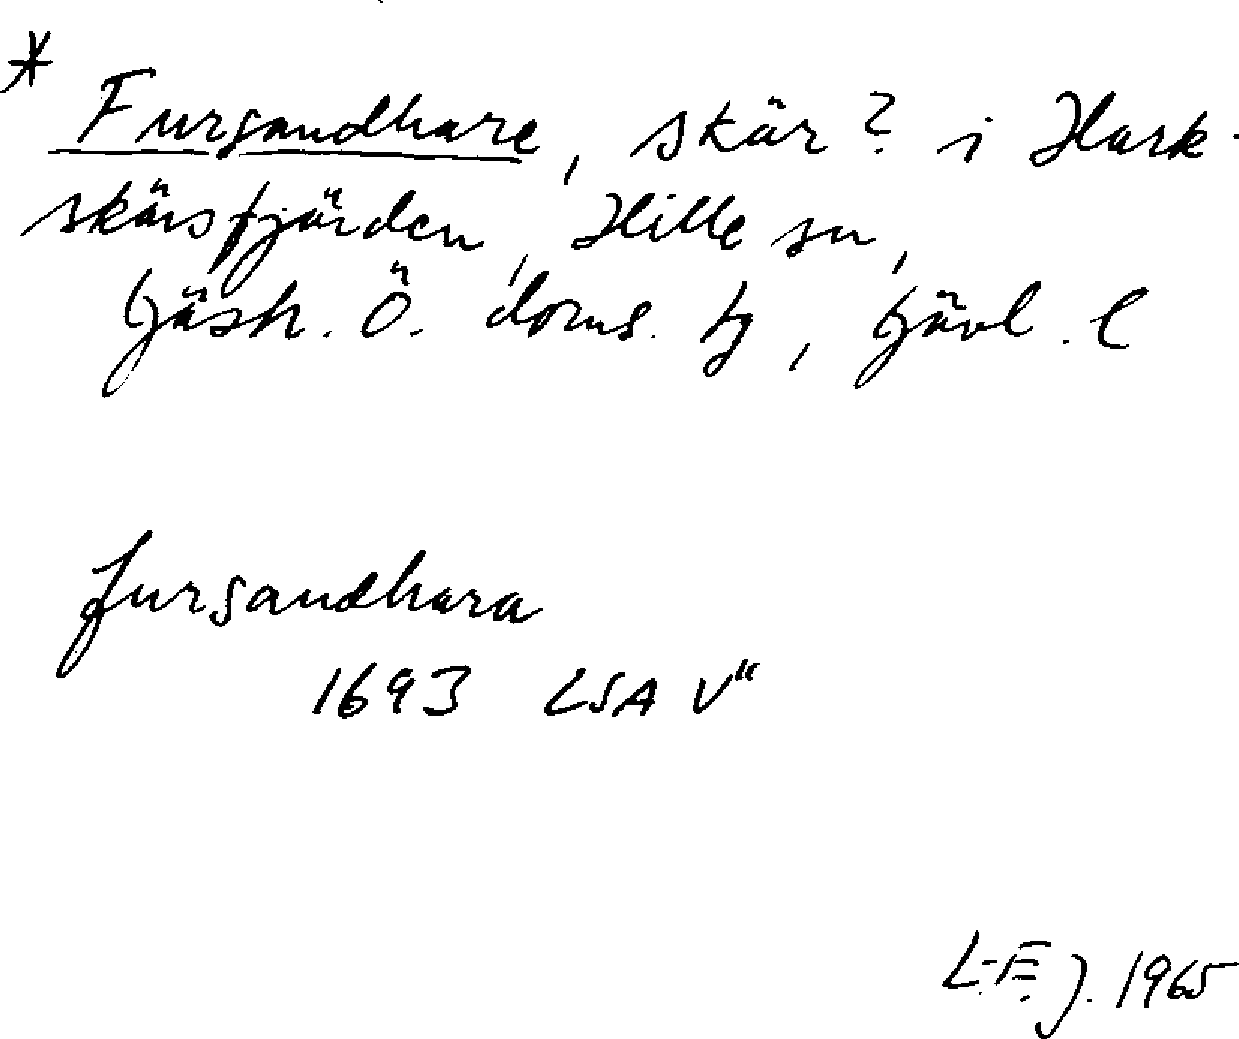 * Fursandhare, skär? i Hark-
skärsfjärden, Hille sn,
Gästr. Ö. doms. tg, Gävl. l
fursandhara
1693 LSA V"
L-E J. 1965